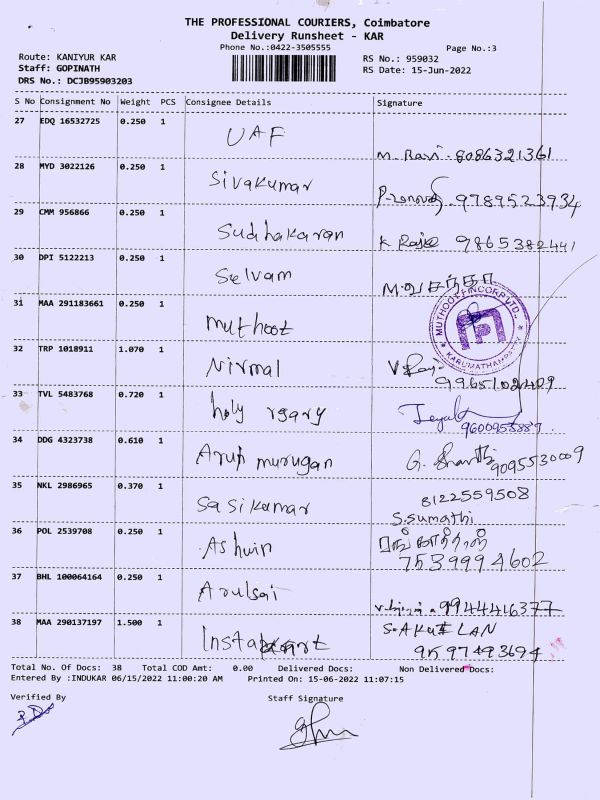 THE PROFESSIONAL COURIERS, Coimbatore
Delivery Runsheet - KAR
Phone No.:0422-3505555
Page No.:3
Route: KANIYUR KAR
RS No.: 959032
Staff: GOPINATH
RS Date: 15-Jun-2022
DRS No.: DCJB95903203
S No Consignment No Weight PCS Consignee Details Signature
27 EDQ 16532725 0.250 1
UAF
M. Ravi - 8086321361
28 MYD 3022126 0.250 1
Sivakumar
9789523934
29 CMM 956866 0.250 1
Sudhakaran
K 9865382441
30 DPI 5122213 0.250 1
Selvam
M. வசந்தா
31 MAA 291183661 0.250 1
muthoot
MUTHOOT FINCORP LTD.,
KARUMATHAMPATTY
32 TRP 1018911 1.070 1
Nirmal
V
9965102409
33 TVL 5483768 0.720 1
holy
34 DDG 4323738 0.610 1
9600955887
Arul murugan
G. 9095530009
35 NKL 2986965 0.370 1
Sasikumar
8122559508
S.Sumathi
36 POL 2539708 0.250 1
Ashwin
7539994602
37 BHL 100064164 0.250 1
Arulsai
9944416377
38 MAA 290137197 1.500 1
Instakart
S. AKILAN
9597493694
Total No. Of Docs: 38 Total COD Amt: 0.00 Delivered Docs: Non Delivered Docs:
Entered By :INDUKAR 06/15/2022 11:00:20 AM Printed On: 15-06-2022 11:07:15
Verified By
Staff Signature